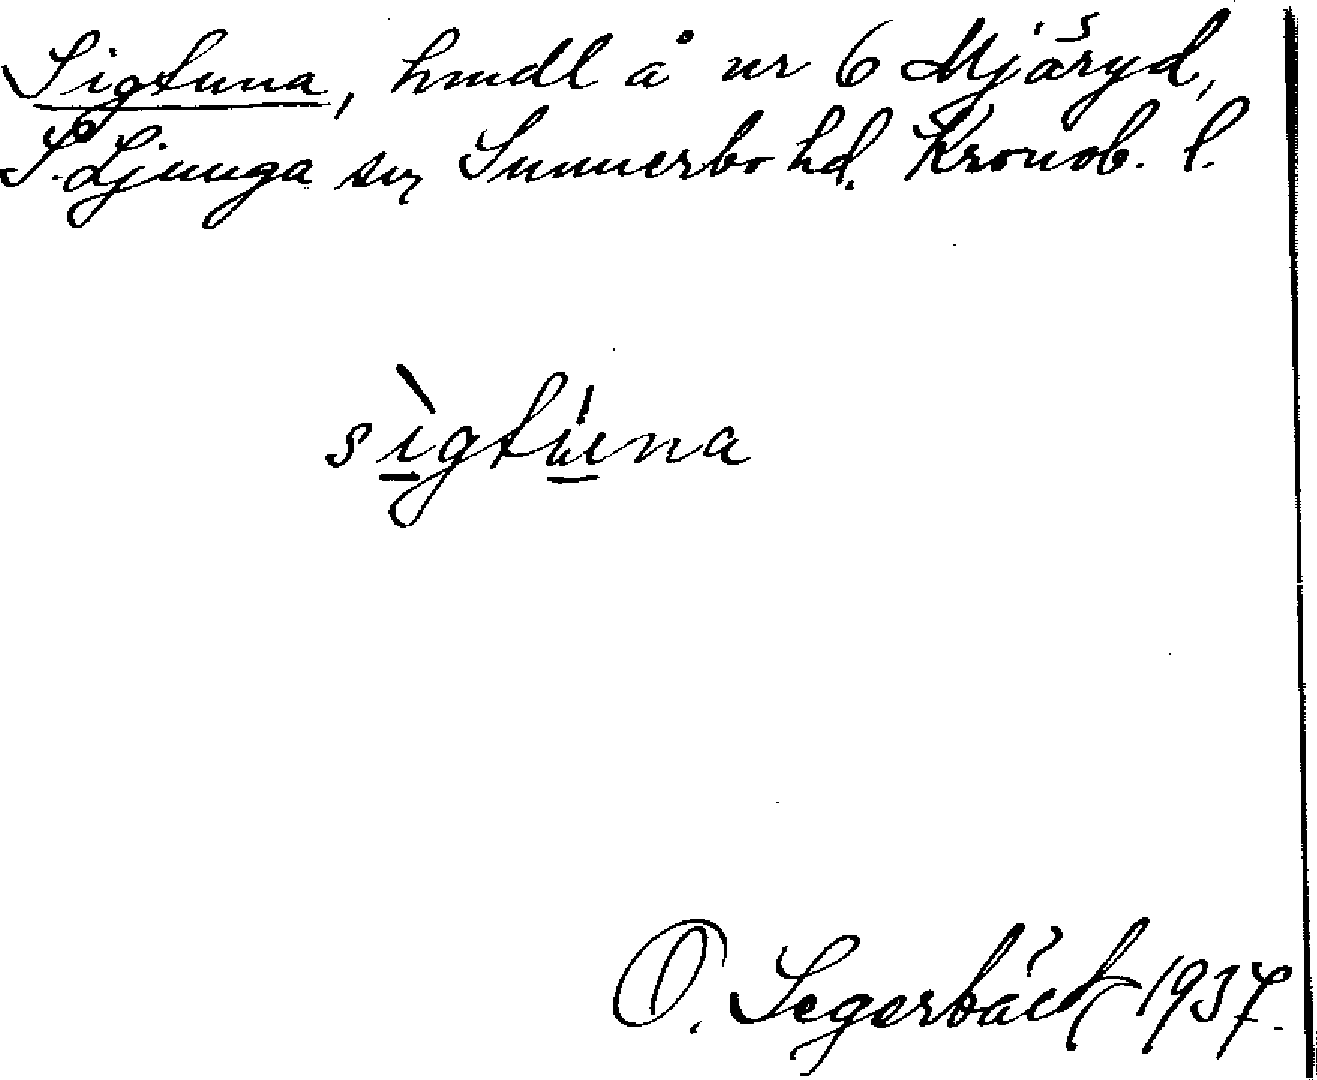 Sigtuna, hmdl å nr 6 Mjäryd,
S. Ljunga sn, Sunnerbo hd. Kronob. l.
sìgtúna
O. Segerbäck 1937.